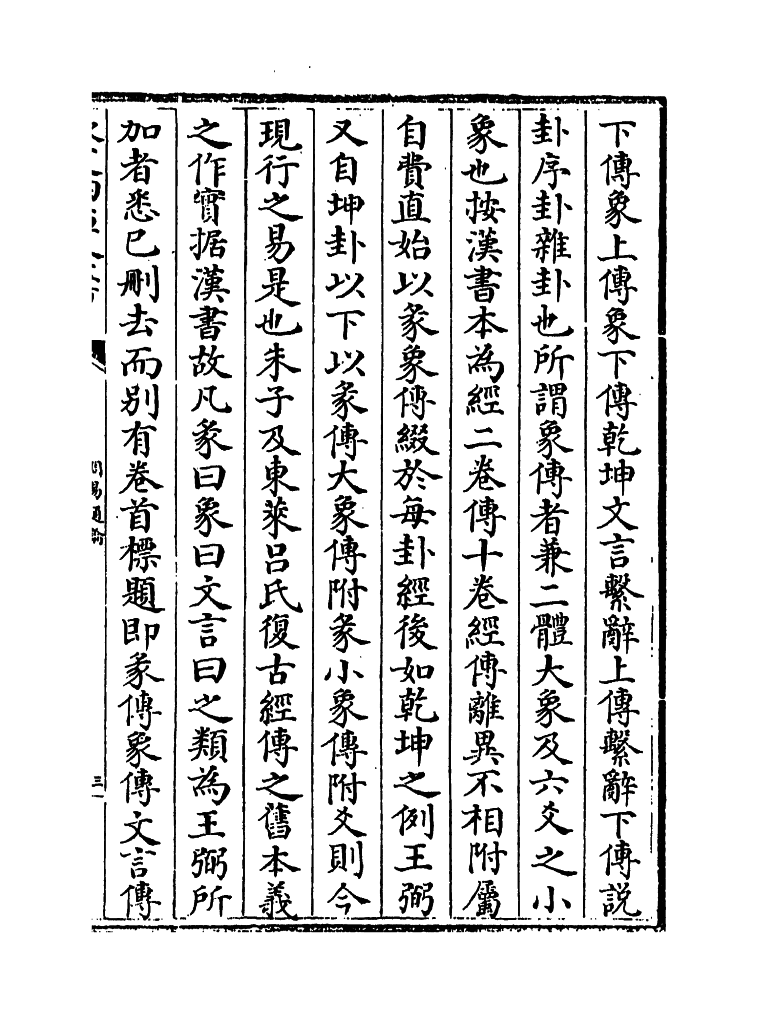 下傳象上傳象下傳乾坤文言繫辭上傳繫辭下傳説
卦序卦雜卦也所謂象傳者兼二體大象及六爻之小
象也按漢書本為經二卷傳十卷經傳離異不相附屬
自費直始以彖象傳綴於每卦經後如乾坤之例王弼
又自坤卦以下以彖傳大象傳附彖小象傳附爻則今
現行之易是也朱子及東萊吕氏復古經傳之舊本義
之作實据漢書故凡彖曰象曰文言曰之類為王弼所
加者悉已刪去而别有卷首標題即彖傳象傳文言傳
周易通論
三